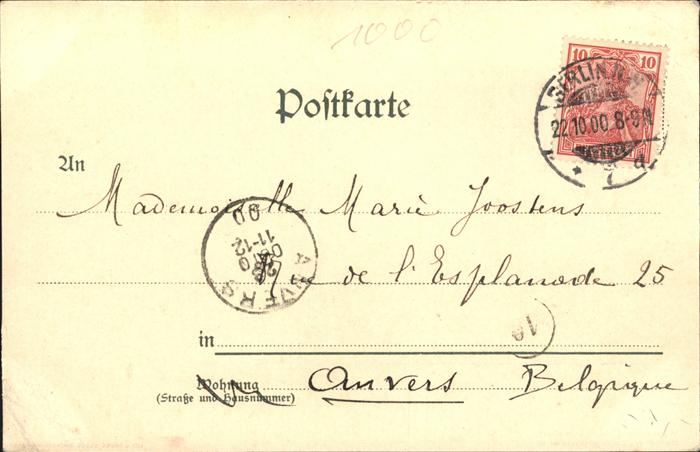 1000
10 10
BERLIN N.W.
22.10.00.8-9N
* 7 d.
Postkarte
An
Mademoiselle Marie Joostens
Rue de l'Esplanade 25
ANVERS
11-12
00
10
in
Wohnung
Anvers Belgique
(Straße und Hausnummer)